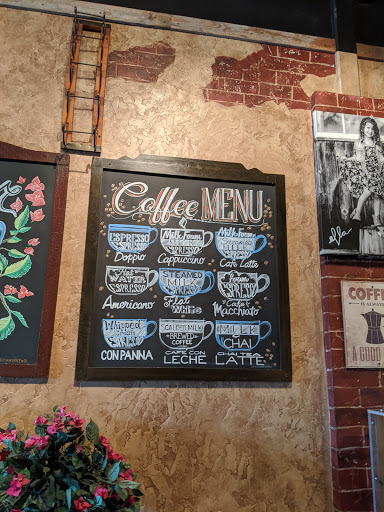 Coffee MENU
ESPRESSO
ESPRESSO
Doppio
Milk Foam
STEAMED MILK
ESPRESSO
Cappuccino
Milk Foam
Steamed
MILK
ESPRESSO
Café Latte
Hot
WATER
ESPRESSO
Americano
STEAMED
MILK
ESPRESSO
Flat
WHITE
Foam
ESPRESSO
Café
Macchiato
Whipped
Cream
ESPRESSO
CON PANNA
SCALDED MILK
BREWED
COFFEE
CAFE CON
LECHE
MILK
CHAI
CHAI TEA
LATTE
ella
COFFEE
IS ALWAYS
A GOOD